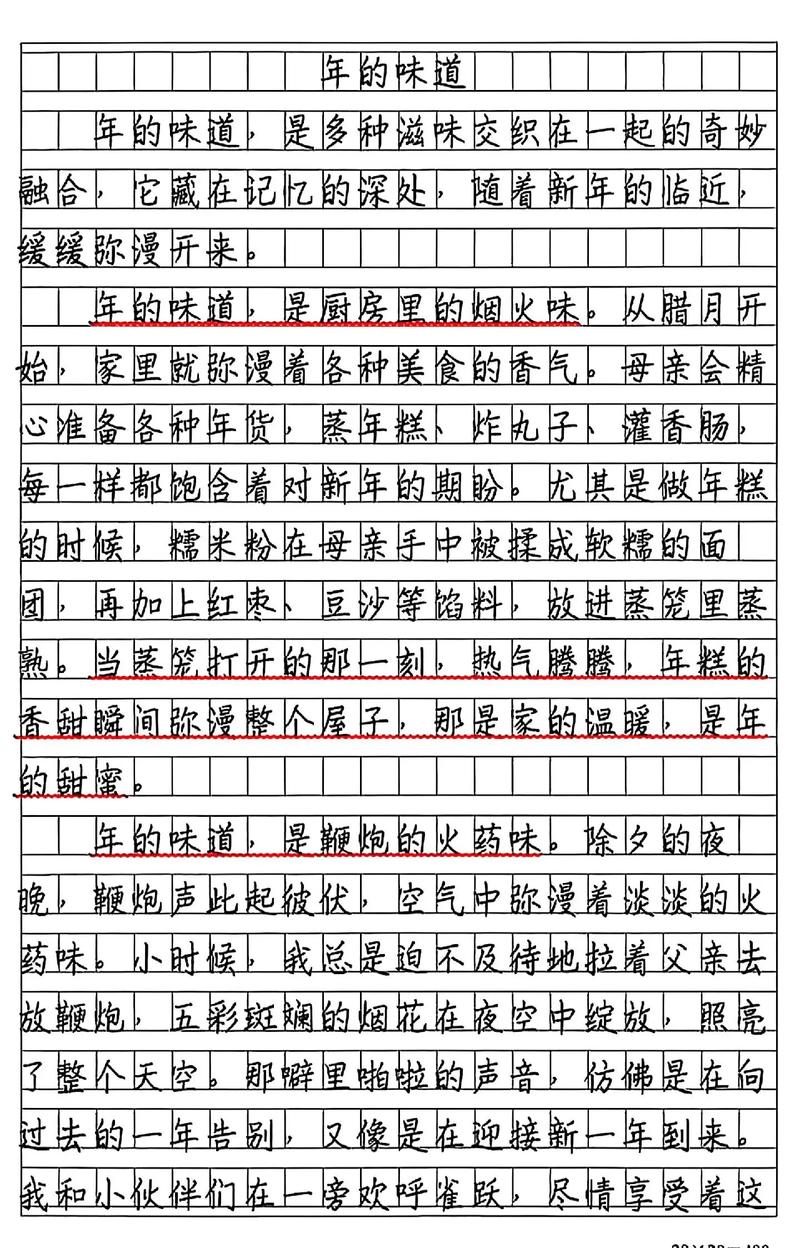 年的味道
年的味道，是多种滋味交织在一起的奇妙
融合，它藏在记忆的深处，随着新年的临近，
缓缓弥漫开来。
年的味道，是厨房里的烟火味。从腊月开
始，家里就弥漫着各种美食的香气。母亲会精
心准备各种年货，蒸年糕、炸丸子、灌香肠，
每一样都饱含着对新年的期盼。尤其是做年糕
的时候，糯米粉在母亲手中被揉成软糯的面
团，再加上红枣、豆沙等馅料，放进蒸笼里蒸
熟。当蒸笼打开的那一刻，热气腾腾，年糕的
香甜瞬间弥漫整个屋子，那是家的温暖，是年
的甜蜜。
年的味道，是鞭炮的火药味。除夕的夜
晚，鞭炮声此起彼伏，空气中弥漫着淡淡的火
药味。小时候，我总是迫不及待地拉着父亲去
放鞭炮，五彩斑斓的烟花在夜空中绽放，照亮
了整个天空。那噼里啪啦的声音，仿佛是在向
过去的一年告别，又像是在迎接新一年到来。
我和小伙伴们在一旁欢呼雀跃，尽情享受着这